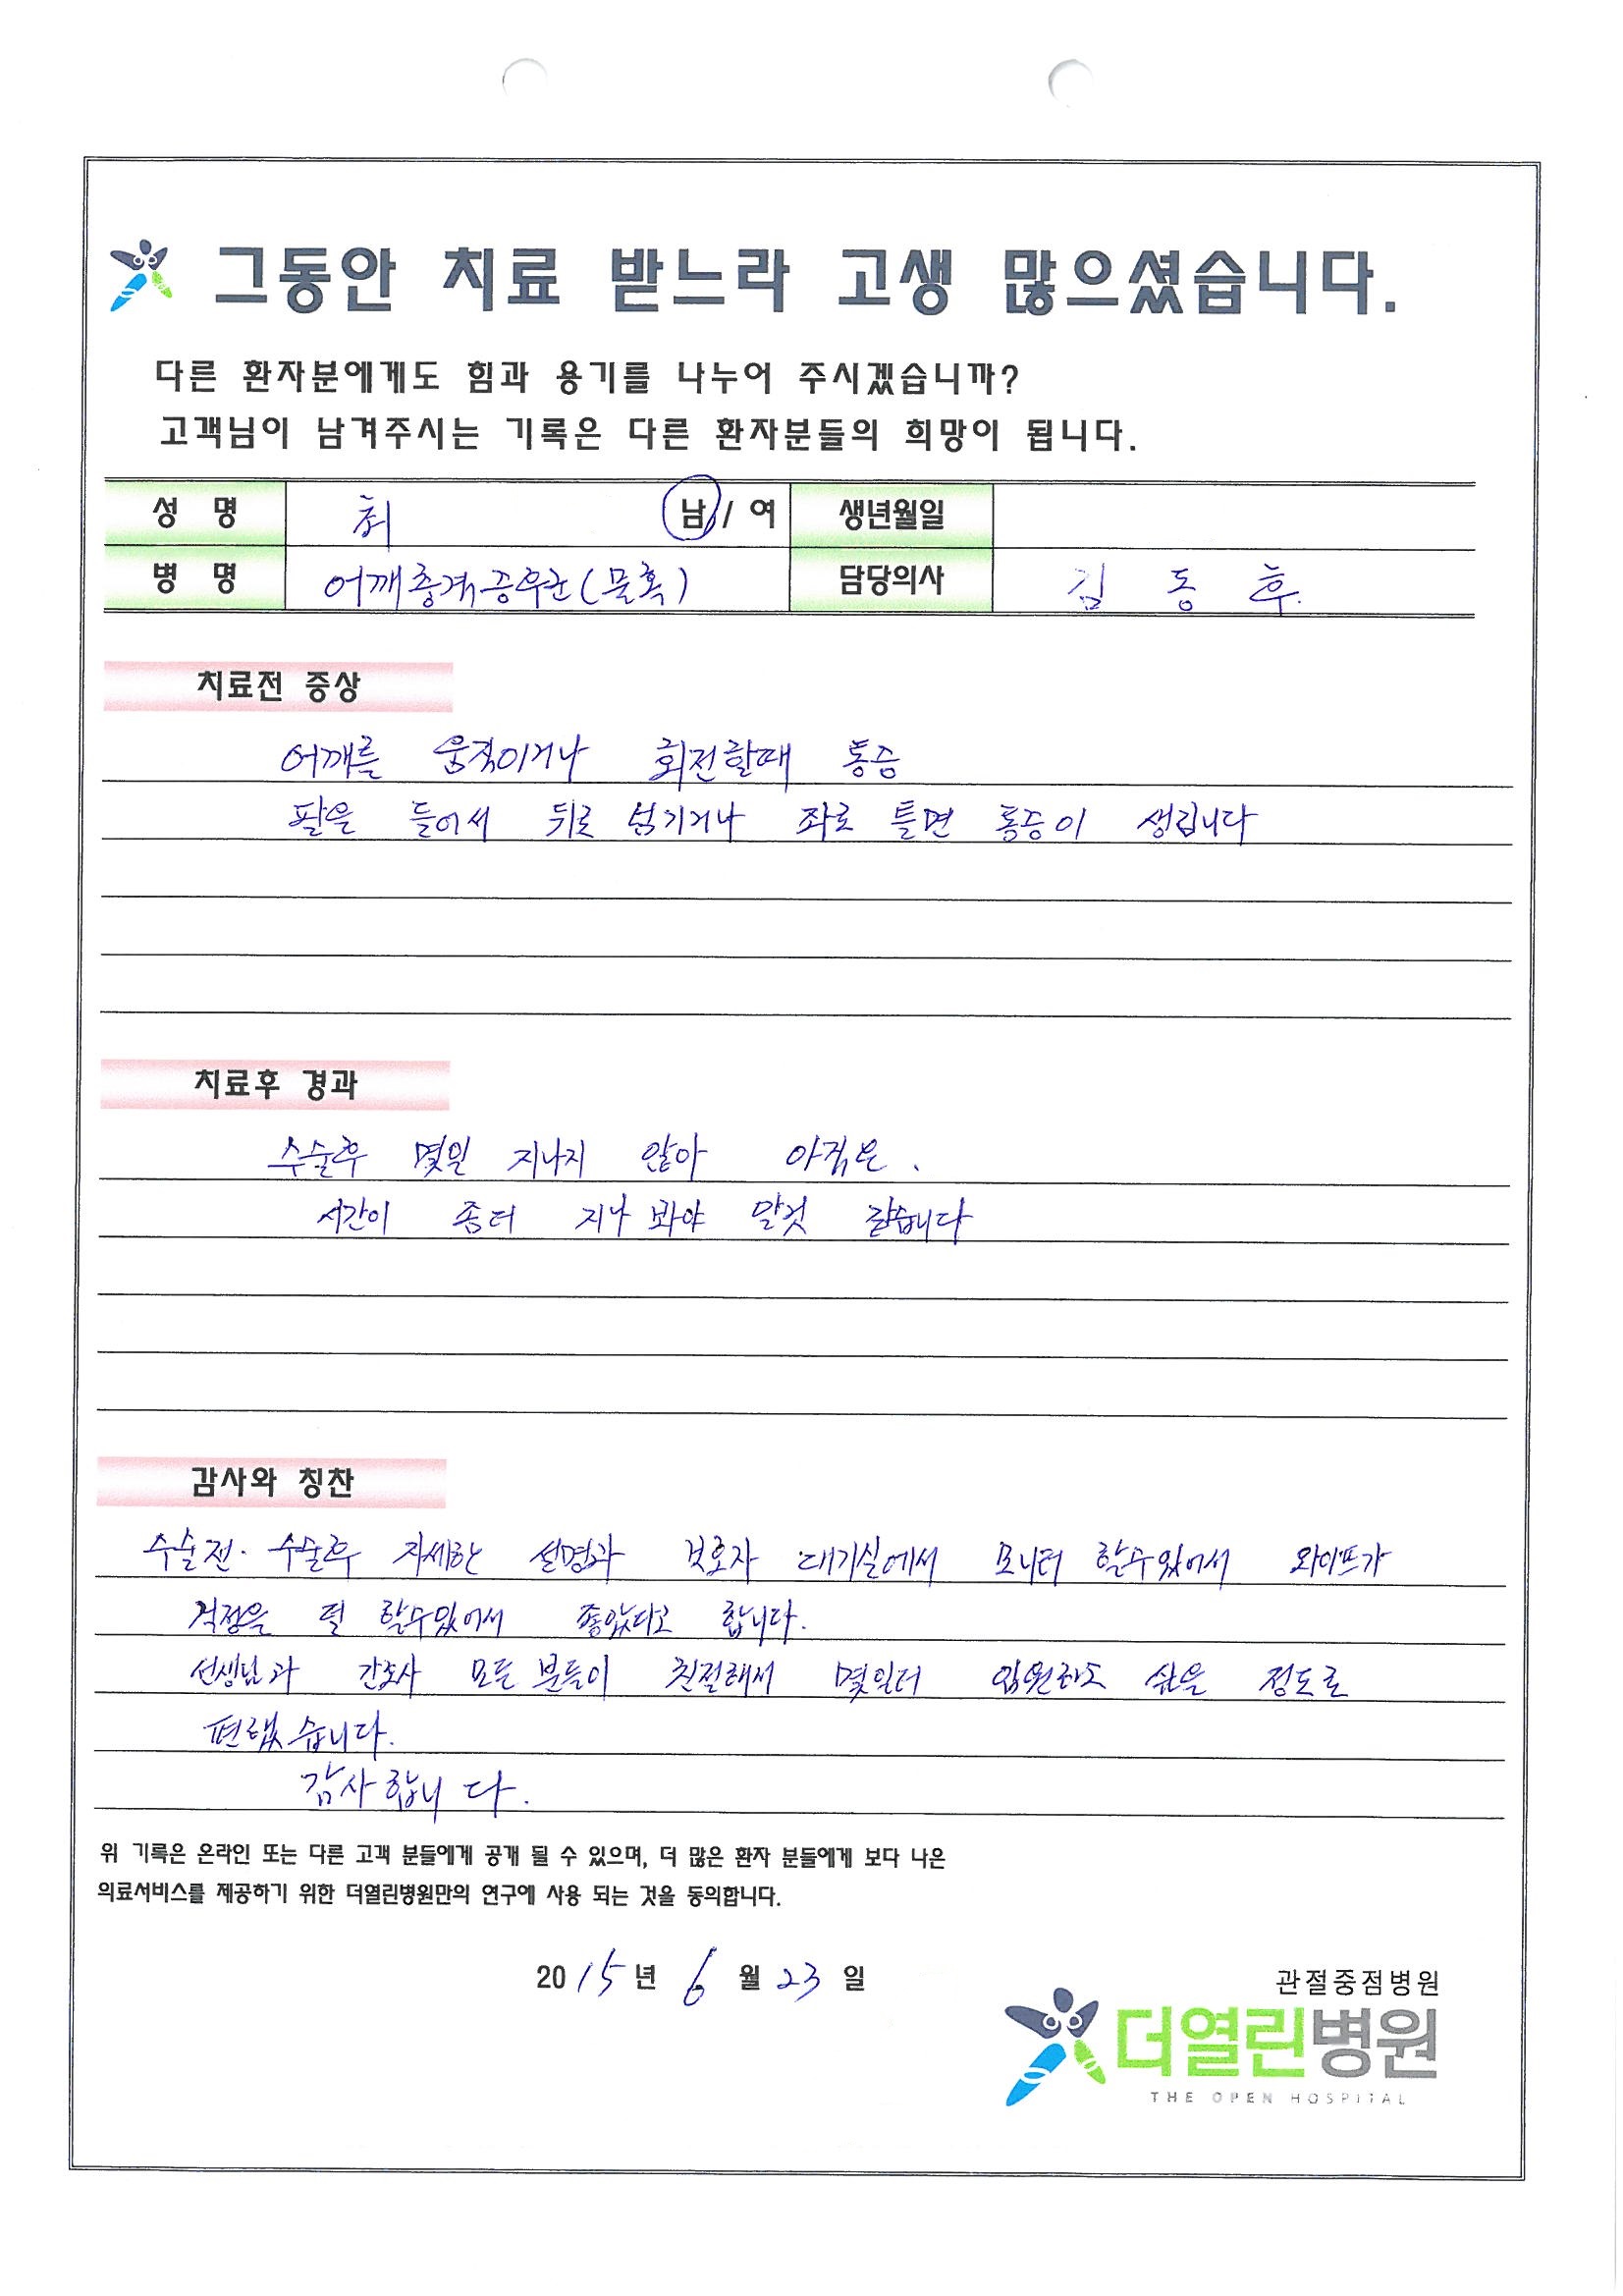 그동안 치료 받느라 고생 많으셨습니다.
다른 환자분에게도 힘과 용기를 나누어 주시겠습니까?
고객님이 남겨주시는 기록은 다른 환자분들의 희망이 됩니다.
성 명 최 남 / 여 생년월일
병 명 어깨충격증후군(물혹) 담당의사 김 동 후.
치료전 증상
어깨를 움직이거나 회전할때 통증
팔을 들어서 뒤로 넘기거나 좌로 틀면 통증이 생깁니다
치료후 경과
수술후 몇일 지나지 않아 아직은.
시간이 좀더 지나 봐야 알것 같습니다
감사와 칭찬
수술전. 수술후 자세한 설명과 보호자 대기실에서 모니터 할수있어서 와이프가
걱정을 덜 할수있어서 좋았다고 합니다.
선생님과 간호사 모든 분들이 친절해서 몇일더 입원하고 싶을 정도로
편했습니다.
감사합니다.
위 기록은 온라인 또는 다른 고객 분들에게 공개 될 수 있으며, 더 많은 환자 분들에게 보다 나은
의료서비스를 제공하기 위한 더열린병원만의 연구에 사용 되는 것을 동의합니다.
2015년 6월 23일
관절중점병원
더열린병원
THE OPEN HOSPITAL